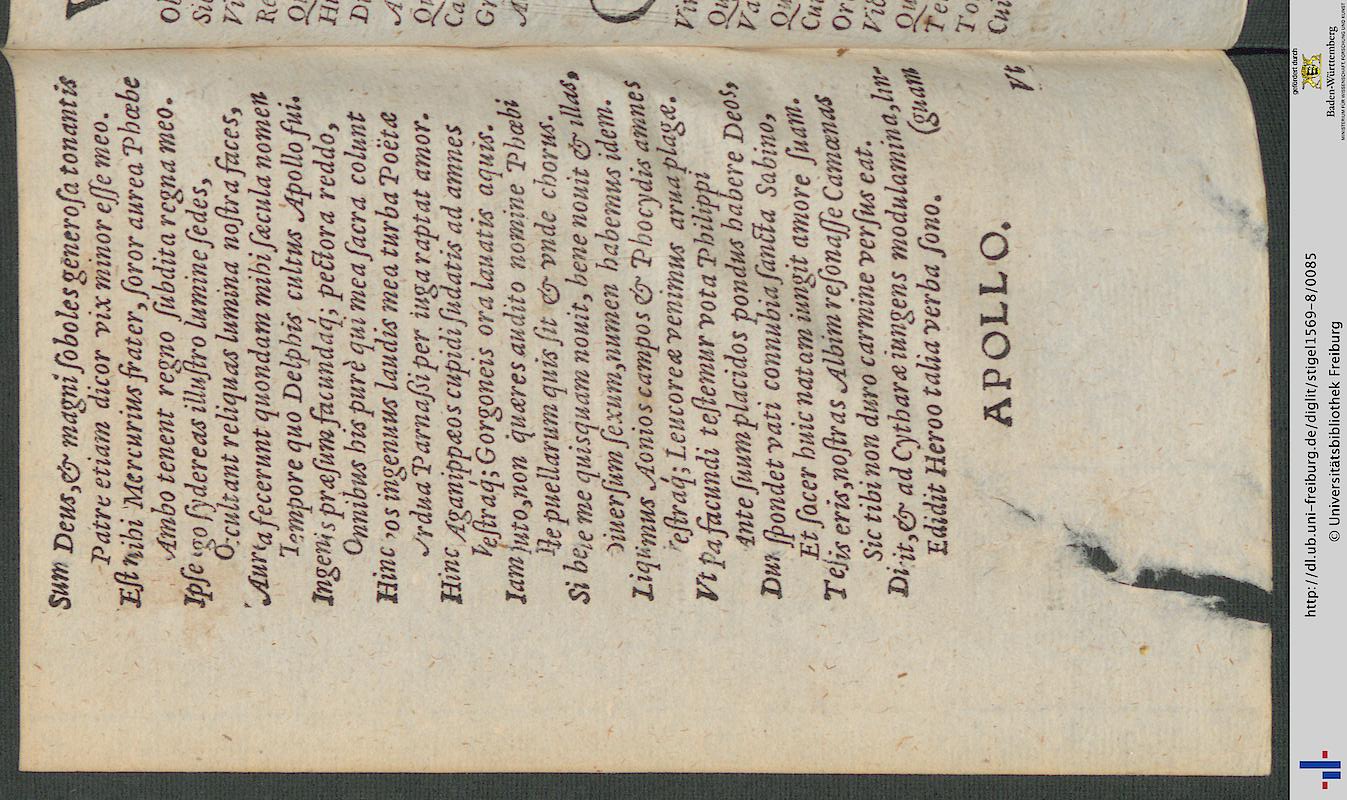 Sum Deus, & magni ſoboles generoſa tonantis
Patre etiam dicor vix minor eſſe meo.
Eſt mihi Mercurius frater, ſoror aurea Phœbe
Ambo tenent regno ſubdita regna meo.
Ipſe ego ſydereas illuſtro lumine ſedes,
Occultant reliquas lumina noſtra faces,
Aurea fecerunt quondam mihi ſæcula nomen
Tempore quo Delphis cultus Apollo fui.
Ingenijs præſum facundaq; pectora reddo,
Omnibus his purè qui mea ſacra colunt
Hinc vos ingenuus laudis mea turba Poëtæ
Ardua Parnaſsi per iuga raptat amor.
Hinc Aganippæos cupidi ſudatis ad amnes
Veſtraq; Gorgoneis ora lauatis aquis.
Iam puto, non quæres audito nomine Phœbi
He puellarum quis ſit & vnde chorus.
Si bene me quisquam nouit, bene nouit & illas,
Diuerſum ſexum, numen habemus idem.
Liquimus Aonios campos & Phocydis amnes
Veſtraq; Leucoreæ venimus arua plagæ.
Vt pa facundi teſtemur vota Philippi
Ante ſuum placidos pondus habere Deos,
Dum ſpondet vati connubia ſancta Sabino,
Et ſacer huic natam iungit amore ſuam.
Teſis eris, noſtras Albim reſonaſſe Camœnas
Sic tibi non duro carmine verſus eat.
Dixit, & ad Cytharæ iungens modulamina, lin-
(guam
Edidit Heroo talia verba ſono.
APOLLO.
Vt
Ob
Sic
Vi
Re
Qu
Hi
D
A
Qu
Ca
Gr
A
Vir
Qu
Va
Qu
Cui
Or
Vid
Qu
Te
To
Cui
gefördert durch
Baden-Württemberg
MINISTERIUM FÜR WISSENSCHAFT, FORSCHUNG UND KUNST
http://dl.ub.uni-freiburg.de/diglit/stigel1569-8/0085
© Universitätsbibliothek Freiburg